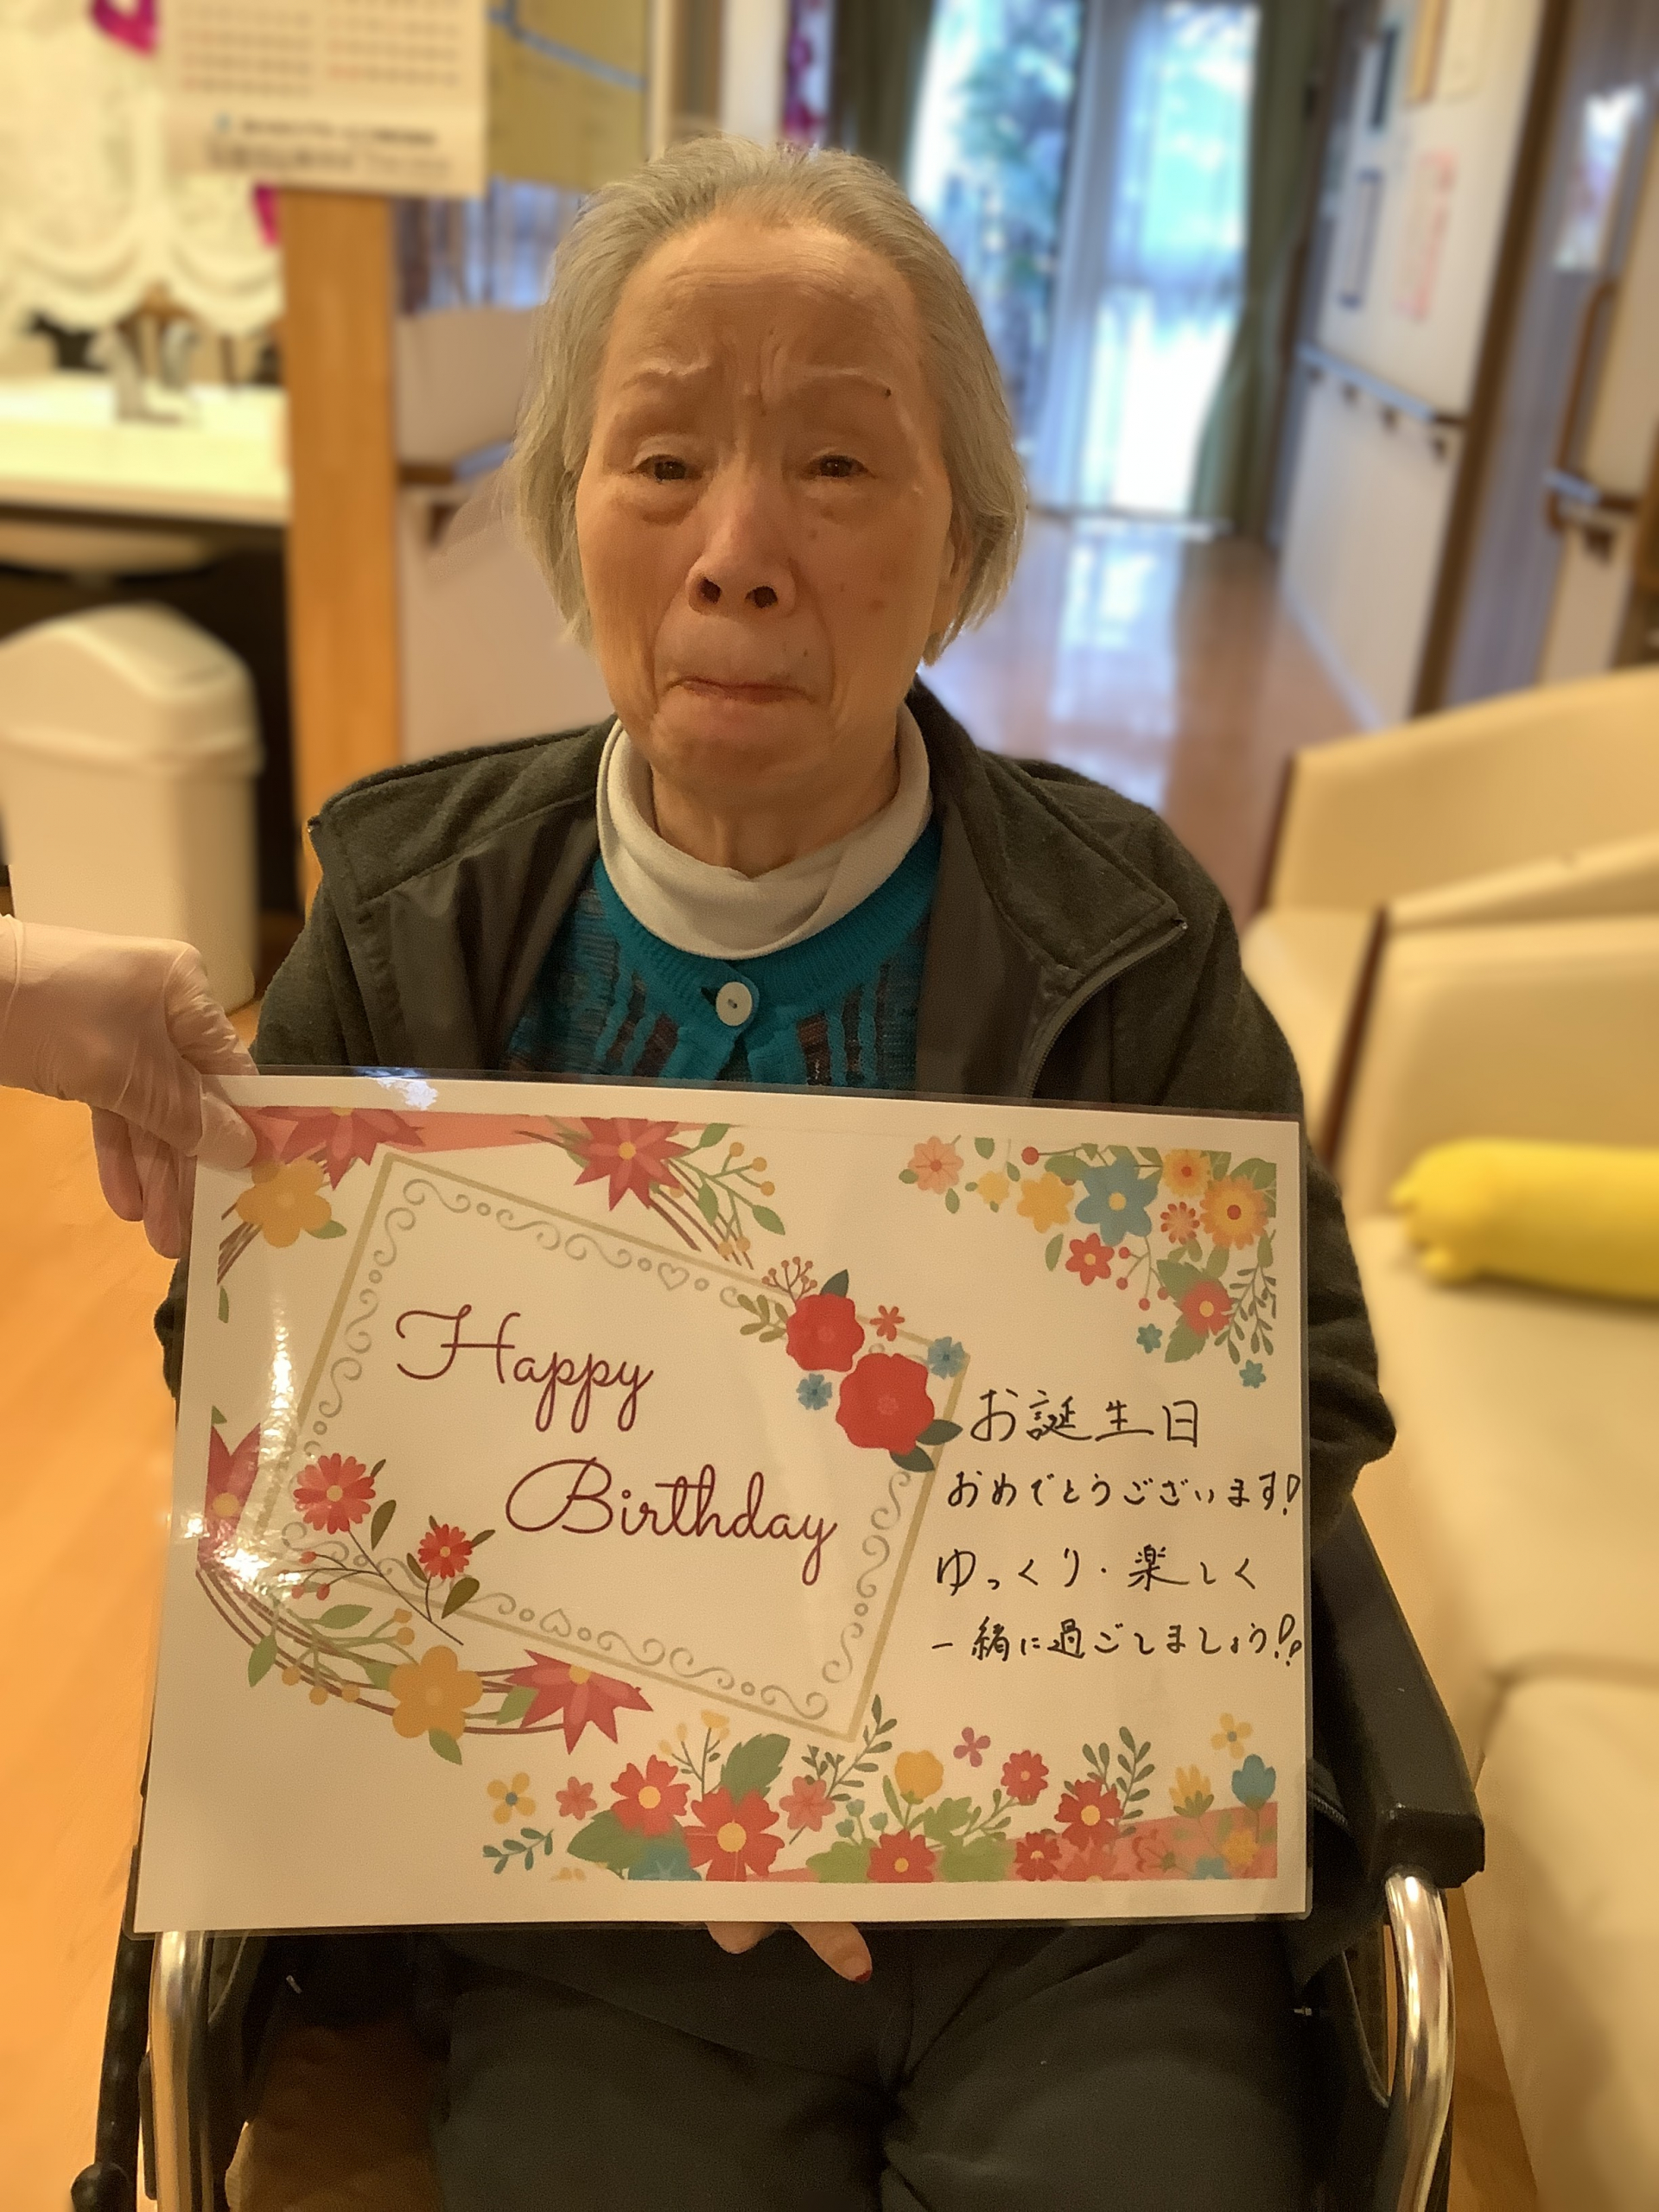 Happy
Birthday
お誕生日
おめでとうございます!
ゆっくり・楽しく
一緒に過ごしましょう!!